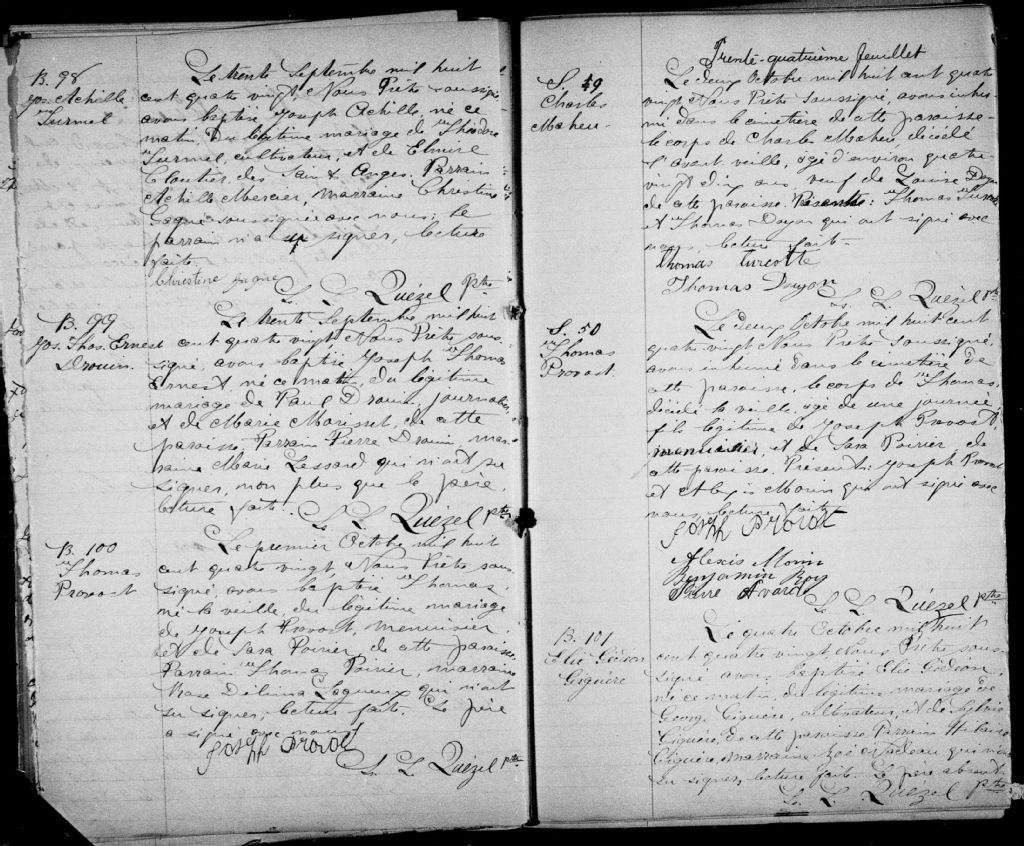 B. 98
Jos. Achille
Turmel
Le trente Septembre mil huit
cent quatre vingt, Nous Prêtre soussigné
avons baptisé Joseph Achille, né ce
matin, Du légitime mariage de Théodore
Turmel, cultivateur, et de Elmire
Cloutier, des Saints Anges. Parrain
Achille Mercier, marraine Christine
Gagné soussignée avec nous; le
parrain n'a su signer, lecture
faite.
Christine Gagné
L. L. Quézel Ptre
B. 99
Jos. Thos. Ernest
Drouin.
Le trente Septembre mil huit
cent quatre vingt Nous Prêtre sous
signé, avons baptisé Joseph Thomas
Ernest né ce matin, du légitime
mariage de Paul Drouin, journalier,
et de Marie Morisset, de cette
paroisse. Parrain Pierre Drouin, mar
raine Marie Lessard qui n'ont su
signer, non plus que le père,
lecture faite.
L. L. Quézel Ptre
B. 100
Thomas
Provost
Le premier Octobre mil huit
cent quatre vingt, Nous Prêtre sous
signé, avons baptisé Thomas,
né la veille, du légitime mariage
de Joseph Provost, menuisier,
et de Sara Poirier, de cette paroisse.
Parrain Thomas Poirier, marraine
Rose Délina Lequeux qui n'ont
su signer, lecture faite. Le père
a signé avec nous
Joseph Provost
L. L. Quézel Ptre
Trente-quatrième feuillet
S. 49
Charles
Maheu.
Le deux Octobre mil huit cent quatre
vingt Nous Prêtre Soussigné, avons inhu
mé dans le cimetière de cette paroisse
le corps de Charles Maheu, décédé
l'avant veille, agé d'environ quatre
vingt dix ans, veuf de Louise Doyon
de cette paroisse. Présents: Thomas
et Thomas Doyon qui ont signé avec
nous, lecture faite.
Thomas Turcotte
Thomas Doyon
L. L. Quézel Ptre
S. 50
Thomas
Provost.
Le deux Octobre mil huit cent
quatre vingt Nous Prêtre Soussigné,
avons inhumé dans le cimetière de
cette paroisse, le corps de Thomas,
décédé la veille, agé de une journée,
fils légitime de Joseph Provost,
menuisier, et de Sara Poirier de
cette paroisse. Présents: Joseph Provost
et Alexis Morin qui ont signé avec
nous, lecture faite
Joseph Provost
Alexis Morin
Benjamin Roy
Pierre Avard
L. L. Quézel ptre
B. 101
Elie Gédéon
Giguère
Le quatre Octobre mil huit
cent quatre vingt Nous Prêtre sous
signé avons baptisé Elie Gédéon,
né ce matin, du légitime mariage de
George Giguère, cultivateur, et de Sylvie
Giguère, de cette paroisse. Parrain Hilaire
Giguère, marraine Zoé Nadeau qui n'ont
su signer, lecture faite. Le père absent.
L. L. Quézel Ptre